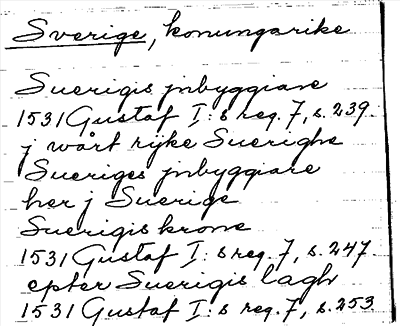 Sverige, konungarike
Suerigis jnbyggiare
1531 Gustaf I:s reg. 7, s. 239.
j wårt rijke Suerighe
Sueriges jnbyggiare
her j Suerige
Suerigis krone
1531 Gustaf I:s reg. 7, s. 247
epter Suerigis lagh
1531 Gustaf I:s reg. 7, s. 253